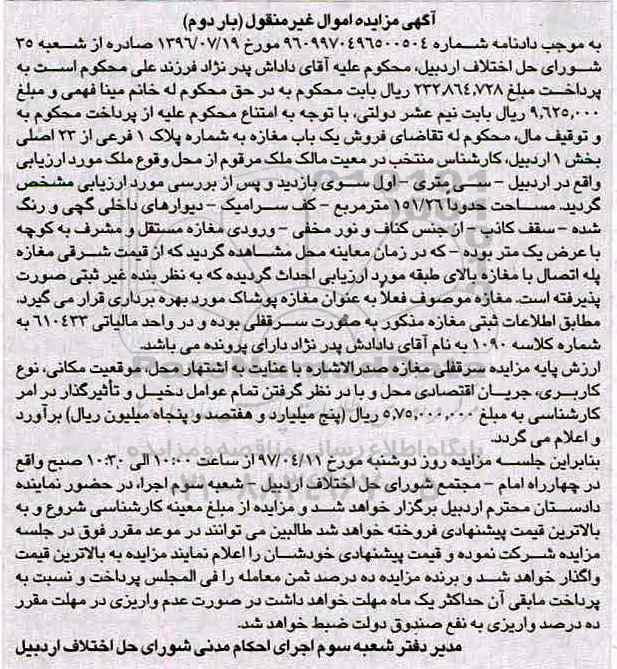 آگهی مزایده اموال غیرمنقول (بار دوم)
به موجب دادنامه شماره ۹۶۰۹۹۷۰۴۹۶۵۰۰۵۰۴ مورخ ۱۳۹۶/۰۷/۱۹ صادره از شعبه ۳۵
شورای حل اختلاف اردبیل، محکوم علیه آقای داداش پدر نژاد فرزند علی محکوم است به
پرداخت مبلغ ۲۳۲,۸۶۴,۷۲۸ ریال بابت محکوم به در حق محکوم له خانم مینا فهمی و مبلغ
۹,۶۲۵,۰۰۰ ریال بابت نیم عشر دولتی، با توجه به امتناع محکوم علیه از پرداخت محکوم به
و توقیف مال، محکوم له تقاضای فروش یک باب مغازه به شماره پلاک ۱ فرعی از ۲۳ اصلی
بخش ۱ اردبیل، کارشناس منتخب در معیت مالک ملک مرقوم از محل وقوع ملک مورد ارزیابی
واقع در اردبیل - سی متری - اول سوی بازدید و پس از بررسی مورد ارزیابی مشخص
گردید. مساحت حدودا ۱۵۱/۲۶ مترمربع - کف سرامیک - دیوارهای داخلی گچی و رنگ
شده - سقف کاذب - از جنس کناف و نور مخفی - ورودی مغازه مستقل و مشرف به کوچه
با عرض یک متر بوده - که در زمان معاینه محل مشاهده گردید که از قیمت شرقی مغازه
پله اتصال با مغازه بالای طبقه مورد ارزیابی احداث گردیده که به نظر بنده غیر ثبتی صورت
پذیرفته است. مغازه موصوف فعلاً به عنوان مغازه پوشاک مورد بهره برداری قرار می گیرد.
مطابق اطلاعات ثبتی مغازه مذکور به صورت سرقفلی بوده و در واحد مالیاتی ۶۱۰۴۳۳ به
شماره کلاسه ۱۰۹۰ به نام آقای دادادش پدر نژاد دارای پرونده می باشد.
ارزش پایه مزایده سرقفلی مغازه صدرالاشاره با عنایت به اشتهار محل، موقعیت مکانی، نوع
کاربری، جریان اقتصادی محل و با در نظر گرفتن تمام عوامل دخیل و تأثیرگذار در امر
کارشناسی به مبلغ ۵,۷۵,۰۰۰,۰۰۰ ریال (پنج میلیارد و هفتصد و پنجاه میلیون ریال) برآورد
و اعلام می گردد.
بنابراین جلسه مزایده روز دوشنبه مورخ ۹۷/۰۴/۱۱ از ساعت ۱۰:۰۰ الی ۱۰:۳۰ صبح واقع
در چهارراه امام - مجتمع شورای حل اختلاف اردبیل - شعبه سوم اجرا، در حضور نماینده
دادستان محترم اردبیل برگزار خواهد شد و مزایده از مبلغ معینه کارشناسی شروع و به
بالاترین قیمت پیشنهادی فروخته خواهد شد طالبین می توانند در موعد مقرر فوق در جلسه
مزایده شرکت نموده و قیمت پیشنهادی خودشان را اعلام نمایند مزایده به بالاترین قیمت
واگذار خواهد شد و برنده مزایده ده درصد ثمن معامله را فی المجلس پرداخت و نسبت به
پرداخت مابقی آن حداکثر یک ماه مهلت خواهد داشت در صورت عدم واریزی در مهلت مقرر
ده درصد واریزی به نفع صندوق دولت ضبط خواهد شد.
مدیر دفتر شعبه سوم اجرای احکام مدنی شورای حل اختلاف اردبیل